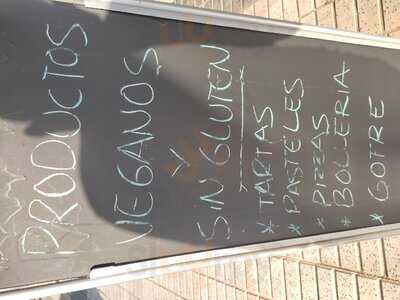 PRODUCTOS
VEGANOS
Y
SIN GLUTEN
* TARTAS
* PASTELES
* PIZZAS
* BOLLERIA
* GOFRE